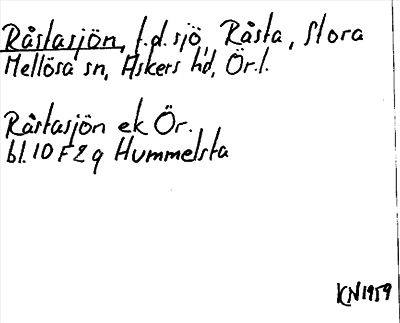 Råstasjön, f.d. sjö, Råsta, Stora
Mellösa sn, Askers hd, Ör.l.
Råstasjön ek Ör.
bl. 10 F 2 g Hummelsta
KN 1959